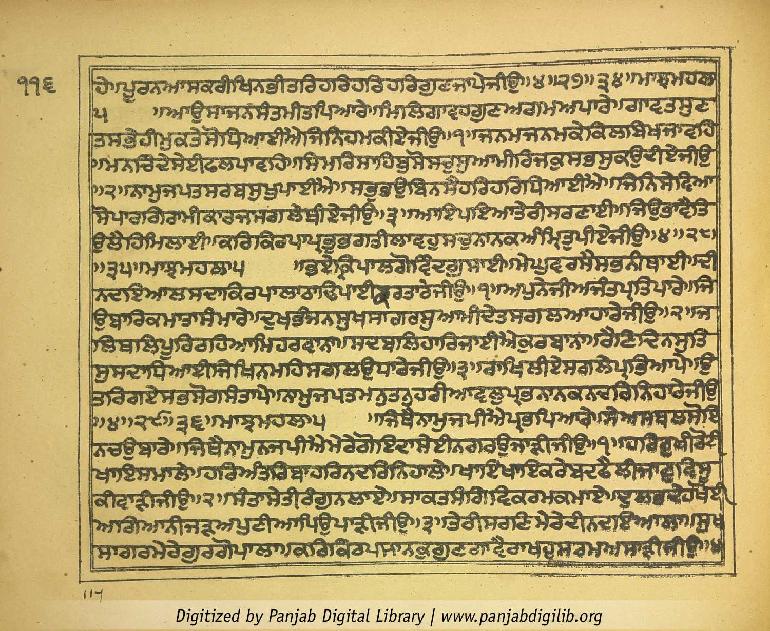 ੧੧੬
ਹੇ॥ਪੂਰਨਆਸਕਰੀਖਿਨਭੀਤਰਿਹਰਿਹਰਿਹਰਿਗੁਣਜਾਪੇਜੀਉ॥੪॥੨੭॥੩੪॥ਮਾਝਮਹਲਾ
੫ ॥ਆਉਸਾਜਨਸੰਤਮੀਤਪਿਆਰੇ॥ਮਿਲਿਗਾਵਹਗੁਣਅਗਮਅਪਾਰੇ॥ਗਾਵਤਸੁਣ
ਤਸਭੇਹੀਮੁਕਤੇਸੋਧਿਆਈਐਜਿਨਿਹਮਕੀਏਜੀਉ॥੧॥ਜਨਮਜਨਮਕੇਕਿਲਬਿਖਜਾਵਹਿ
॥ਮਨਿਚਿੰਦੇਸੇਈਫਲਪਾਵਹਿ॥ਸਿਮਰਿਸਾਹਿਬੁਸੋਸਚੁਸੁਆਮੀਰਿਜਕੁਸਭਸੁਕਉਦੀਏਜੀਉ
॥੨॥ਨਾਮੁਜਪਤਸਰਬਸੁਖੁਪਾਈਐ॥ਸਭੁਭਉਬਿਨਸੈਹਰਿਹਰਿਧਿਆਈਐ॥ਜਿਨਿਸੇਵਿਆ
ਸੋਪਾਰਗਿਰਾਮੀਕਾਰਜਸਗਲੇਥੀਏਜੀਉ॥੩॥ਆਇਪਇਆਤੇਰੀਸਰਣਾਈ॥ਜਿਉਭਾਵੈਤਿ
ਉਲੈਹਿਮਿਲਾਈ॥ਕਰਿਕਿਰਪਾਪ੍ਰਭੁਭਗਤੀਲਾਵਹੁਸਚੁਨਾਨਕਅੰਮ੍ਰਿਤੁਪੀਏਜੀਉ॥੪॥੨੮॥
॥੩੫॥ਮਾਝਮਹਲਾ੫ ॥ਭਏਕ੍ਰਿਪਾਲਗੋਵਿੰਦਗੁਸਾਈ॥ਮੇਘੁਵਰਸੈਸਭਨੀਥਾਈ॥ਦੀ
ਨਦਇਆਲਸਦਾਕਿਰਪਾਲਾਠਾਢਿਪਾਈਕਰਤਾਰੇਜੀਉ॥੧॥ਅਪੁਨੇਜੀਅਜੰਤਪ੍ਰਤਿਪਾਰੇ॥ਜਿ
ਉਬਾਰਿਕਮਾਤਾਸੰਮਾਰੇ॥ਦੁਖਭੰਜਨਸੁਖਸਾਗਰਸੁਆਮੀਦੇਤਸਗਲਆਹਾਰੇਜੀਉ॥੨॥ਜ
ਲਿਥਲਿਪੂਰਿਰਹਿਆਮਿਹਰਵਾਨਾ॥ਸਦਬਲਿਹਾਰਿਜਾਈਐਕੁਰਬਾਨਾ॥ਰੈਣਿਦਿਨਸੁਤਿ
ਸੁਸਦਾਧਿਆਈਜਿਖਿਨਮਹਿਸਗਲਉਧਾਰੇਜੀਉ॥੩॥ਰਾਖਿਲੀਏਸਗਲੇਪ੍ਰਭਿਆਪੇ॥ਉ
ਤਰਿਗਏਸਭਸੋਗਸੰਤਾਪੇ॥ਨਾਮੁਜਪਤਮਨੁਤਨੁਹਰੀਆਵਲੁਪ੍ਰਭਨਾਨਕਨਦਰਿਨਿਹਾਰੇਜੀਉ
॥੪॥੨੯॥੩੬॥ਮਾਝਮਹਲਾ੫ ॥ਜਿਥੈਨਾਮੁਜਪੀਐਪ੍ਰਭਪਿਆਰੇ॥ਸੇਅਸਥਲਸੋਇ
ਨਚਉਬਾਰੇ॥ਜਿਥੈਨਾਮੁਨਜਪੀਐਮੇਰੇਗੋਇਦਾਸੇਈਨਗਰਉਜਾੜੀਜੀਉ॥੧॥ਹਰਿਰੁਖੀਰੋਟੀ
ਖਾਇਸਮਾਲੇ॥ਹਰਿਅੰਤਰਿਬਾਹਰਿਨਦਰਿਨਿਹਾਲੇ॥ਖਾਇਖਾਇਕਰੇਬਦਫੈਲੀਜਾਣੁਵਿਸੂ
ਕੀਵਾੜੀਜੀਉ॥੨॥ਸੰਤਾਸੇਤੀਰੰਗੁਨਲਾਏ॥ਸਾਕਤਸੰਗਿਵਿਕਰਮਕਮਾਏ॥ਦੁਲਭਦੇਹਖੋਈ
ਅਗਿਆਨੀਜੜਅਪੁਣੀਆਪਿਉਪਾੜੀਜੀਉ॥੩॥ਤੇਰੀਸਰਣਿਮੇਰੇਦੀਨਦਇਆਲਾ॥ਸੁਖ
ਸਾਗਰਮੇਰੇਗੁਰਗੋਪਾਲਾ॥ਕਰਿਕਿਰਪਾਨਾਨਕੁਗੁਣਗਾਵੈਰਾਖਹੁਸਰਮਅਸਾੜੀਜੀਉ॥੪
117
Digitized by Panjab Digital Library | www.panjabdigilib.org